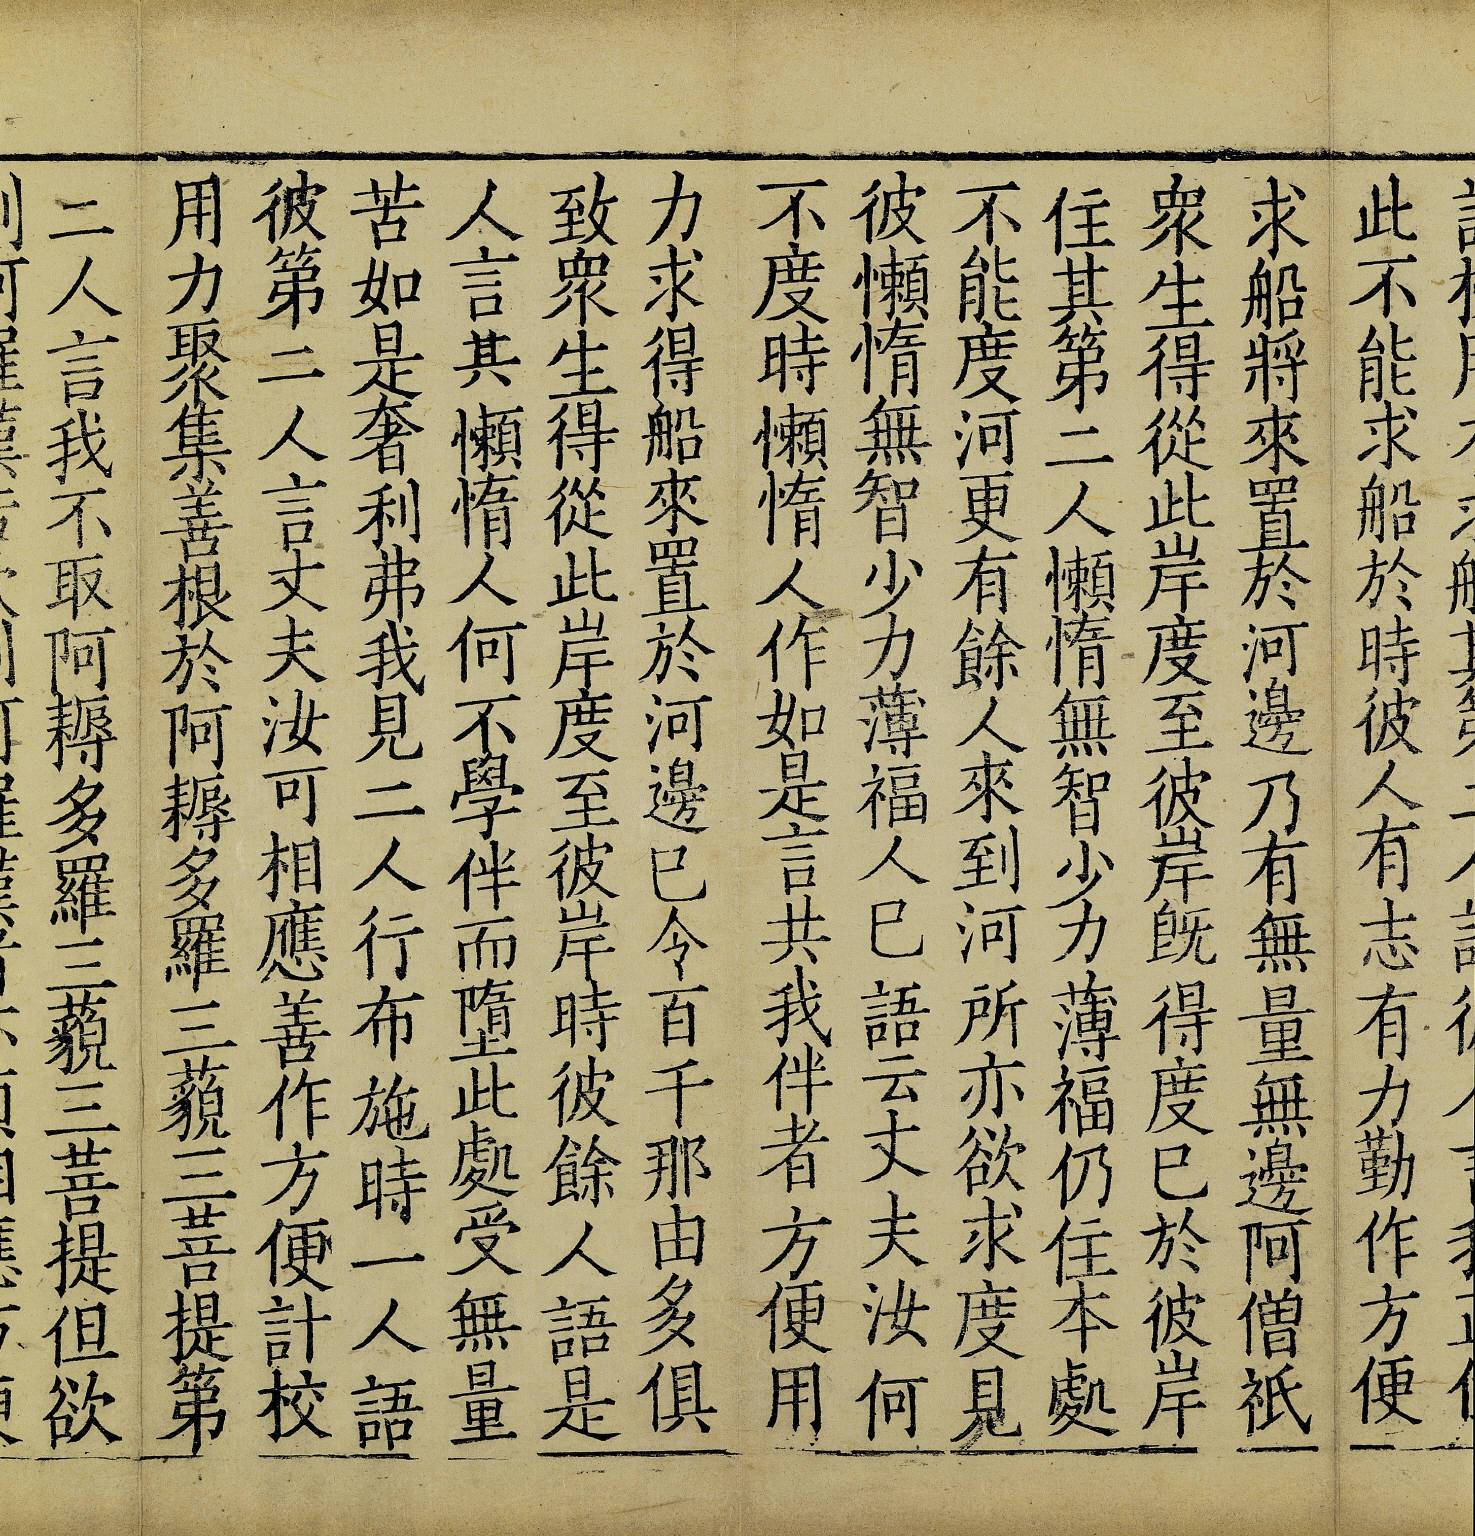 此不能求船於時彼人有志有力勤作方便
求船將來置於河邊乃有無量無邊阿僧祇
眾生得從此岸度至彼岸旣得度已於彼岸
住其第二人懶惰無智少力薄福仍住本處
不能度河更有餘人來到河所亦欲求度見
彼懶惰無智少力薄福人已語云丈夫汝何
不度時懶惰人作如是言共我伴者方便用
力求得船來置於河邊已令百千那由多俱
致眾生得從此岸度至彼岸時彼餘人語是
人言其懶惰人何不學伴而墮此處受無量
苦如是奢利弗我見二人行布施時一人語
彼第二人言丈夫汝可相應善作方便計校
用力聚集善根於阿耨多羅三藐三菩提第
二人言我不取阿耨多羅三藐三菩提但欲